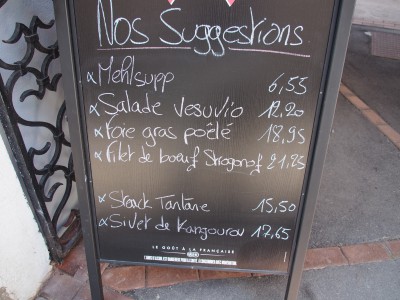 Nos Suggestions
x Mehlsupp 6,55
x Salade Vesuvio 12.20
x Foie gras poêlé 18,95
x Filet de boeuf Strogonof 21.25
x Steack Tartare 15,50
x Sivet de Kangourou 17,65
LE GOÛT À LA FRANÇAISE